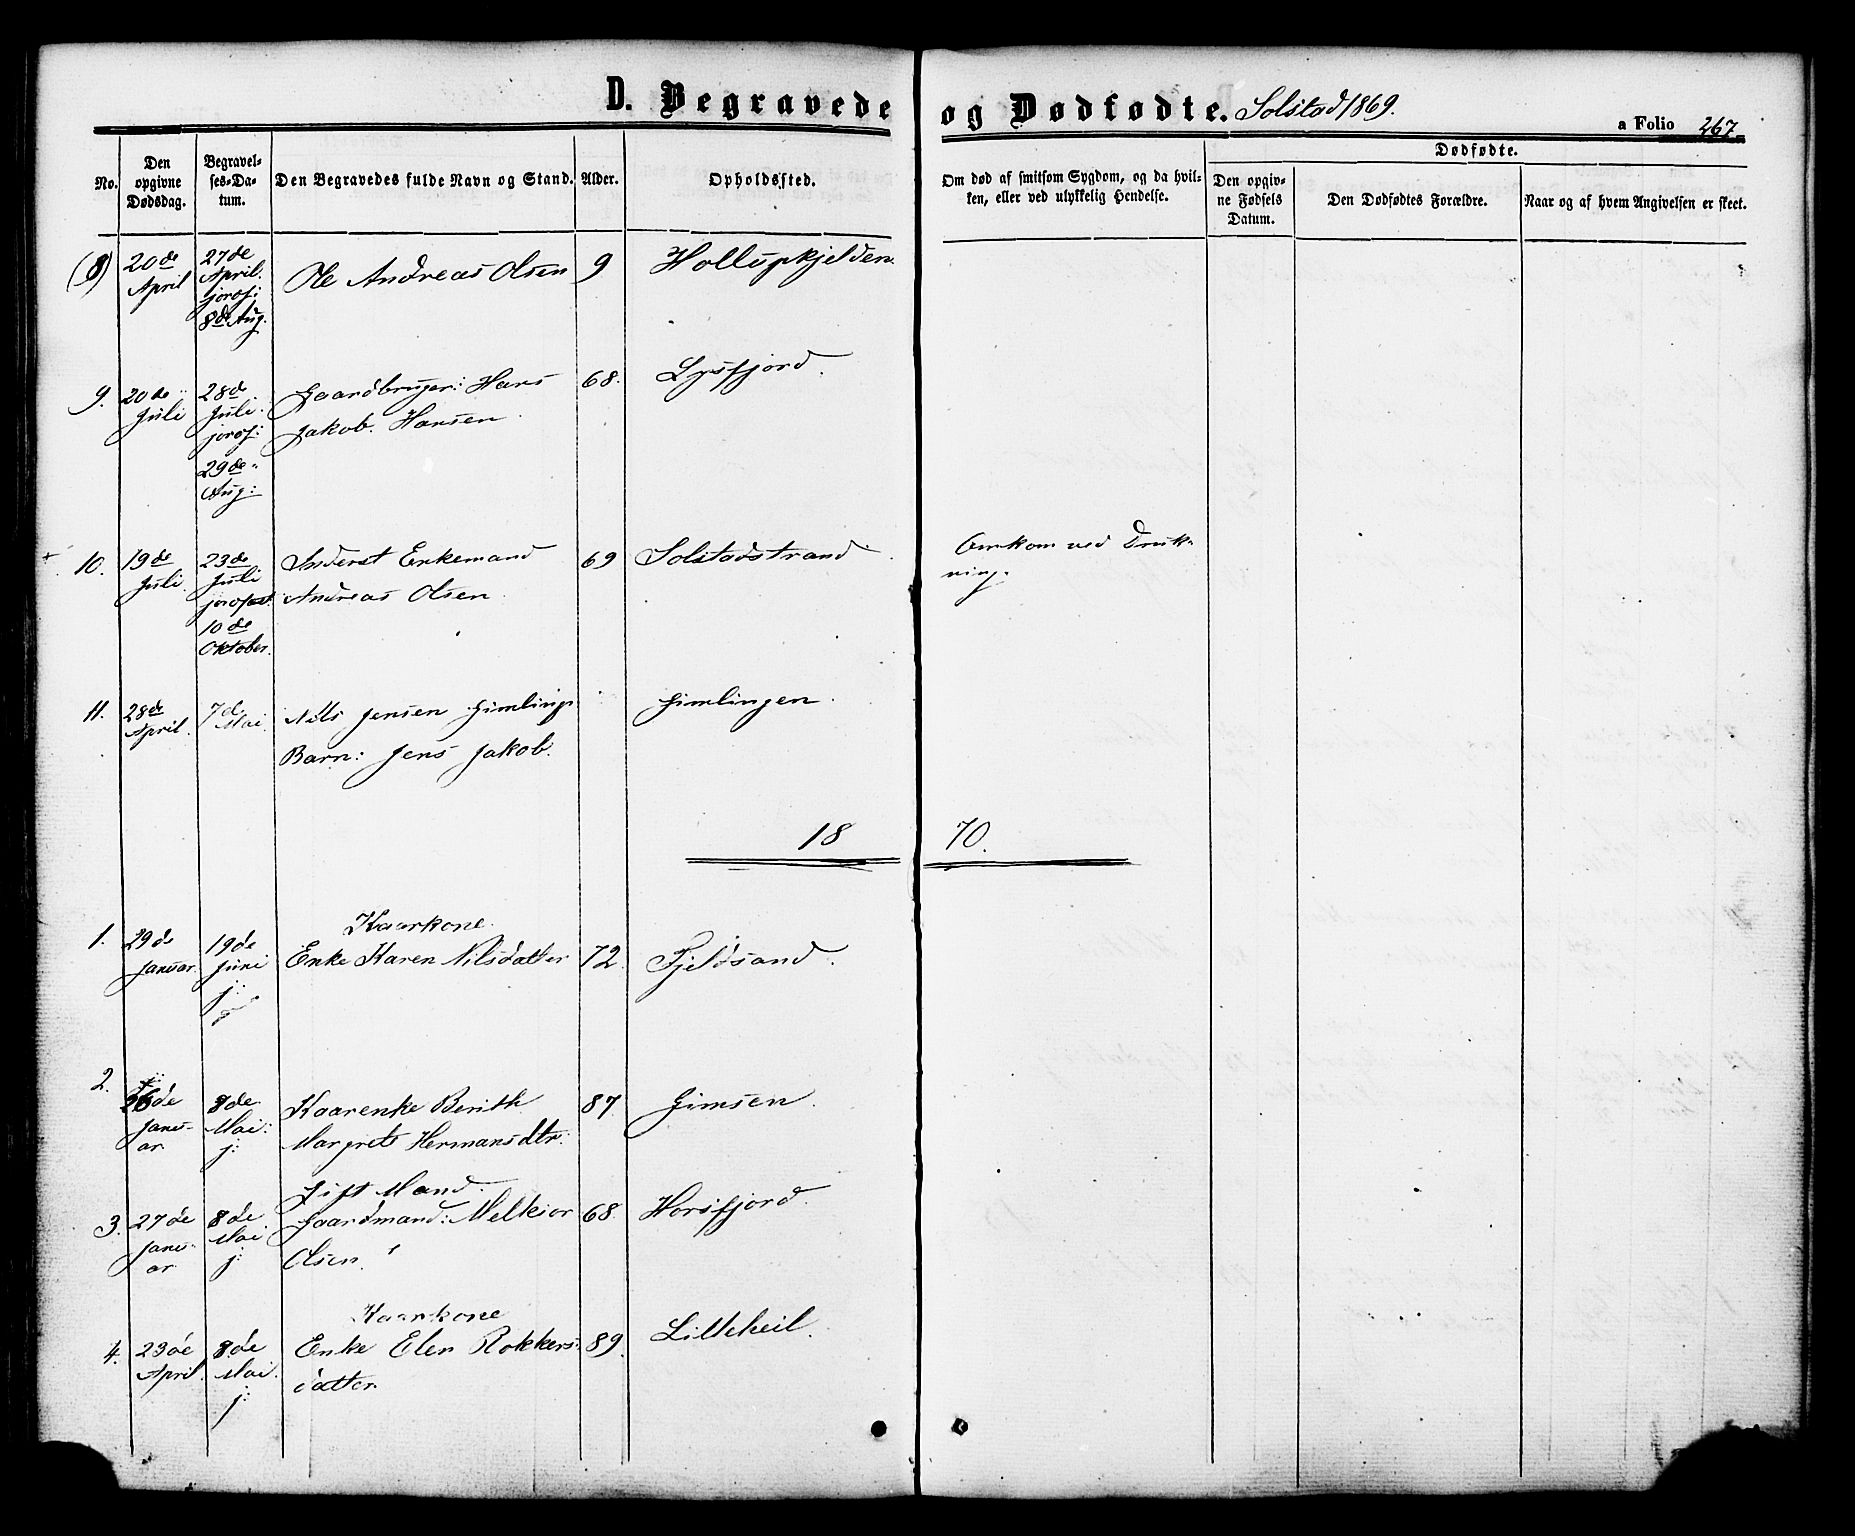 D. Begravede og Dødfødte. Solstad 1869.
a Folio 267
No.
Den opgivne Dødsdag.
Begravel-
ses-Da-
tum.
Den Begravedes fulde Navn og Stand.
Alder.
Opholdssted.
Om død af smitsom Sygdom, og da hvil-
ken, eller ved ulykkelig Hendelse.
Dødfødte.
Den opgiv-
ne Fødsels
Datum.
Den Dødfødtes Forældre.
Naar og af hvem Angivelsen er skeet.
(8) 20de April
27de April. jordf: 8de Aug.
Ole Andreas Olsen
9
Hollupkjelden.
9. 20de Juli
28d Juli. jordf: 29de Aug:
Gaardbruger: Hans
Jakob. Hansen
68.
Lysfjord.
+ 10. 19de Juli
23de Juli jordfæst 10de Oktober.
Inderst Enkemand
Andreas Olsen.
69
Solstadstrand.
Omkom ved Druk-
ning.
11. 28de April.
7d Mai
Nils Jensen Gimlings
Barn: Jens Jakob.
Gimlingen.
1870.
1. 29de Januar.
19de Juni j:
Kaarkone.
Enke Karen Nilsdatter
72.
Fjeldsand.
2. 26de Janu-
ar.
8de Mai: j:
Kaarenke Berith
Margrete Hermansdtr:
87
Gimsen.
3. 27de Janu-
ar
8de Mai j:
Gift Mand.
Gaardmand: Melkior
Olsen.
68.
Horsfjord.
4. 23de April.
8de Mai. j:
Kaarkone
Enke Elen Rokkers-
datter.
89.
Lilleheil.